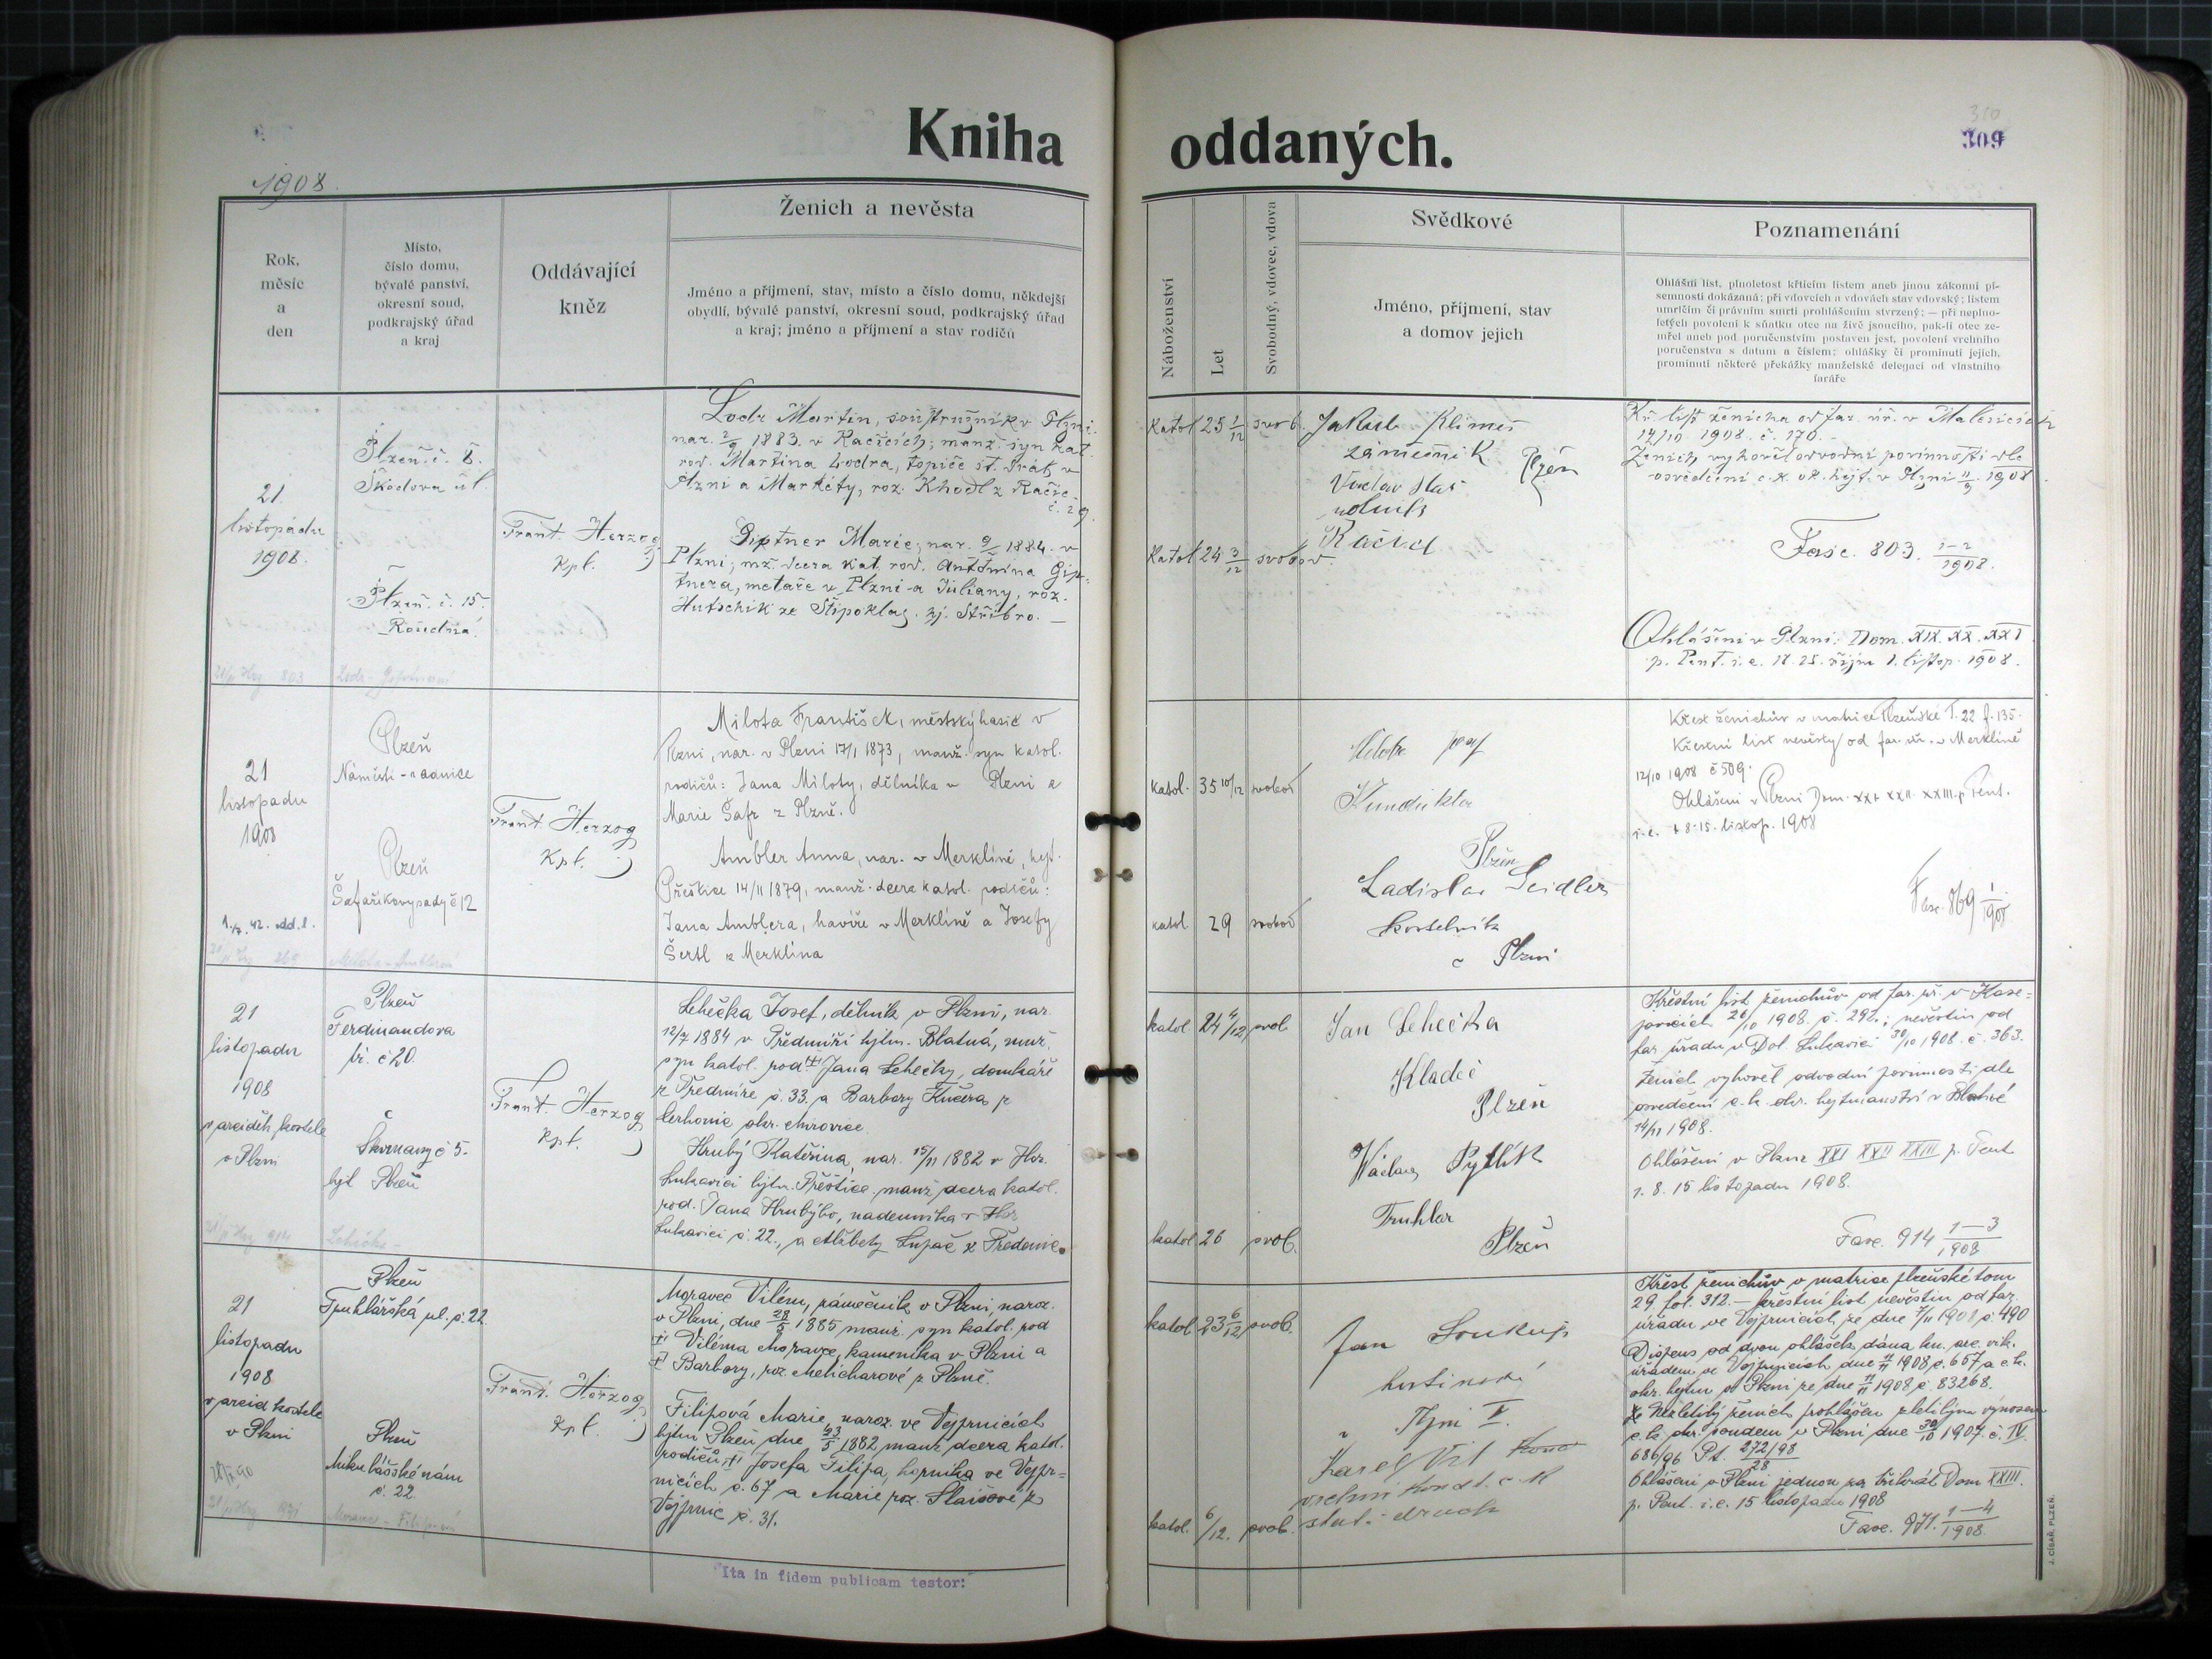 Kniha oddaných.
310
309
1908.
Rok,
měsíc
a
den
Místo,
číslo domu,
bývalé panství,
okresní soud,
podkrajský úřad
a kraj
Oddávající
kněz
Ženich a nevěsta
Jméno a příjmení, stav, místo a číslo domu, někdejší
obydlí, bývalé panství, okresní soud, podkrajský úřad
a kraj; jméno a příjmení a stav rodičů
Náboženství
Let
Svobodný, vdovec, vdova
Svědkové
Jméno, příjmení, stav
a domov jejich
Poznamenání
Ohlášní list, plnoletost křticím listem aneb jinou zákonní pí-
semností dokázaná; při vdovcích a vdovách stav vdovský; listem
umrlčím či právním smrti prohlášením stvrzený; — při neplno-
letých povolení k sňatku otce na živě jsoucího, pak-li otec ze-
mřel aneb pod poručenstvím postaven jest, povolení vrchního
poručenstva s datum a číslem; ohlášky či prominutí jejich,
prominutí některé překážky manželské delegací od vlastního
faráře
21.
listopadu
1908.
Plzeň č. 8.
Škodova ul.
Plzeň č. 15.
Roudná
Frant. Herzog
kpl.
Lodr Martin, soustružník v Plzni
nar. 2/9 1883 v Račicích; manž. syn kat.
rod. Martina Lodra, topiče st. drah v
Plzni a Markéty, roz. Khodl z Račic
č. 29.
Giptner Marie, nar. 9/ 1884 v
Plzni; mž. dcera kat. rod. Antonína Gip-
tnera, metaře v Plzni a Juliany, roz.
Hutschik ze Stipoklas hj. Stříbro. —
Katol 25 2/12 svob.
Katol 24 3/12 svobod.
Jakub Klimeš
zámečník Plzeň
Václav
rolník
Kř. list ženicha od far. úř. v Malesicích
14/10 1908 č. 170.
Ženich vyhověl odvodní povinnosti dle
osvědčení c.k. ok. hejt. v Plzni 11/9 1908.
Fasc. 803. 1-2/1908.
Ohlášeni v Plzni: Dom. XIX. XX. XXI
p. Pent. i.e. 18. 25. října 1. listop. 1908.
21
listopadu
1908
1./7. 42. odd. l.
Plzeň
Náměstí - radnice
Plzeň
Šafaříkovy sady č 12
Frant. Herzog
kpl.
Milota František, městský hasič v
Plzni, nar. v Plzni 17/1 1873, manž. syn katol.
rodičů: Jana Miloty, dělníka v Plzni a
Marie Šafr z Plzně.
Ambler Anna, nar. v Merklíně, hejt.
Přeštice 14/11 1879, manž. dcera katol. rodičů:
Jana Amblera, havíře v Merklíně a Josefy
Šertl z Merklína
katol. 35 10/12 svobod
katol 29 svobod
Milota Josef
Kunduktor
Plzeň
Ladislav Seidler
kostelník
v Plzni
Křest ženichův v matrice Plzeňské T. 22 f. 135.
Křestní list nevěsty od far. úř. v Merklíně
12/10 1908 č 509.
Ohlášeni v Plzni Dom. XXI XXII XXIII p. Pent.
i.e. 1 8. 15. listop. 1908
Fasc. 869 1/1908
21
listopadu
1908
v arciděk. kostele
v Plzni
Plzeň
Ferdinandova
tř. č 20.
Skvrňany č 5.
byt Plzeň
Frant. Herzog
kpl.
Lehečka Josef, dělník v Plzni, nar.
12/7 1884 v Předmíři hjtm. Blatná, manž.
syn katol. rod. Jana Lehečky, domkáře
z Předmíře č. 33. a Barbory Kučera z
Hrubý Kateřina, nar. 15/11 1882 v Hor.
Lukavici hjtm. Přeštice, manž. dcera katol.
rod. Jana Hrubýho, nádenníka v Hor.
Lukavici č. 22., a Alžběty Lupač z Předenic.
katol 24 4/12 svob.
katol 26 svob.
Jan Lehečka
Kladeč
Plzeň
Václav Pytlík
Truhlar
Plzeň
Křestní list ženichův od far. úř. v Kase-
jovicích 26/10 1908 č. 292.; nevěstin od
far. úřadu v Dol. Lukavici 30/10 1908 č. 363.
Ženich vyhověl odvodní povinnosti dle
osvědčení c. k. okr. hejtmanství v Blatné
14/11 1908.
Ohlášeni v Plzni XXI XXII XXIII p. Pent
1. 8. 15 listopadu 1908.
Fasc. 914 1-3/1908
21
listopadu
1908
v arcid kostele
v Plzni
Plzeň
Truhlářská ul. č. 22
Plzeň
Mikulášské nám
č. 22.
Frant. Herzog
kpl.
Moravec Vilém, zámečník v Plzni, naroz.
v Plzni, dne 28/5 1885 manž. syn katol. rod
Viléma Moravce, kameníka v Plzni a
Barbory, roz. Melicharové z Plzně.
Filipová Marie, naroz. ve Vejprnicích
hjtm Plzeň dne 23/5 1882 manž dcera katol.
rodičů Josefa Filipa, horníka ve Vejpr-
nicích č. 67 a Marie roz. Slaisové z
Vejprnic č. 31.
katol. 23 6/12 svob.
katol. 6/12. svob.
Jan Soukup
hostinský
v Plzni
Karel Vit
Křest ženichův v matrice plzeňské tom
29. fol. 312. — křestní list nevěstin od far.
úřadu ve Vejprnicích ze dne 7/11 1908 č. 490
Dispens od dvou ohlášek dána kn. arc. vik.
úřadem ve Vejprnicích dne 11/11 1908 č. 657 a c. k.
okr. hejtm v Plzni ze dne 11/11 1908 č. 83268.
Nezletilý ženich prohlášen zletilým výnosem
c. k. okr. soudem v Plzni dne 30/10 1907. č. IV.
686/96 Pt. 272/98
28
Ohlášeni v Plzni jednou za třikrát Dom XXIII.
p. Pent. i.e. 15 listopadu 1908
Fasc. 971. 1-4/1908.
"Ita in fidem publicam testor:"
J. CÍSAŘ, PLZEŇ.